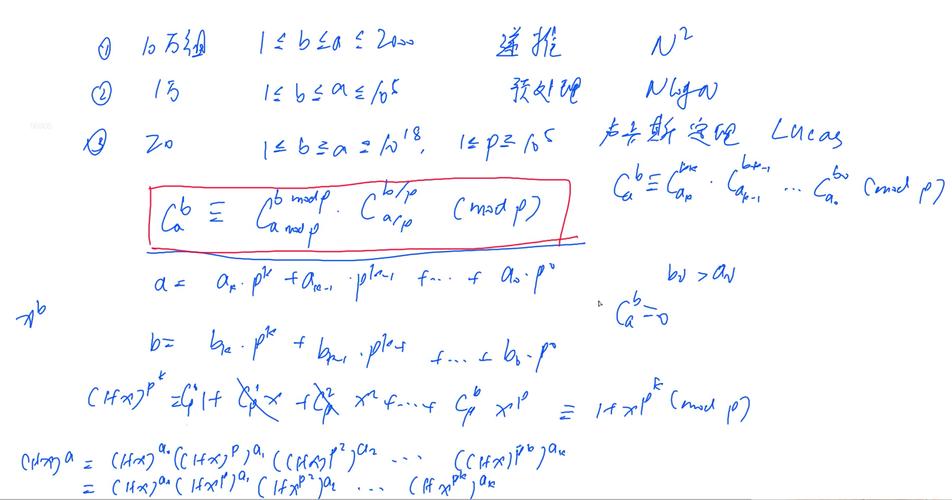 ① 10万组 1 ≤ b ≤ a ≤ 2000 递推 N²
② 1万 1 ≤ b ≤ a ≤ 10⁵ 预处理 NlogN
③ 20 1 ≤ b ≤ a ≤ 10¹⁸, 1 ≤ p ≤ 10⁵ 卢卡斯定理 Lucas
C_a^b ≡ C_{a_k}^{b_k} · C_{a_{k-1}}^{b_{k-1}} ... C_{a_0}^{b_0} (mod p)
C_a^b ≡ C_{a mod p}^{b mod p} · C_{a/p}^{b/p} (mod p)
a = a_k · p^k + a_{k-1} · p^{k-1} + ... + a_0 · p^0
b_0 > a_0
C_a^b = 0
x^b
b = b_k · p^k + b_{k-1} · p^{k-1} + ... + b_0 · p^0
(1+x)^{p^k} ≡ 1 + C_p^1 x + C_p^2 x² + ... + C_p^p x^p ≡ 1 + x^{p^k} (mod p)
(1+x)^a = (1+x)^{a_0} ((1+x)^p)^{a_1} ((1+x)^{p^2})^{a_2} ... ((1+x)^{p^k})^{a_k}
= (1+x)^{a_0} (1+x^p)^{a_1} (1+x^{p^2})^{a_2} ... (1+x^{p^k})^{a_k}